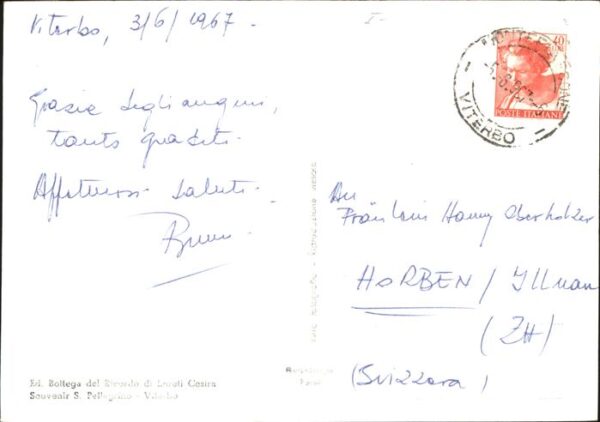 Viterbo, 3/6/1967.
Grazie degli auguri,
tanto graditi.
Affettuosi saluti.
Bruno.
An
Fräulein Hanny Oberholzer
HORBEN / Illnau
(ZH)
(Svizzera)
Ed. Bottega del Ricordo di Lucati Cesira
Souvenir S. Pellegrino - Viterbo
Vera fotografia - Riproduzione vietata
40
POSTE ITALIANE
VITERBO